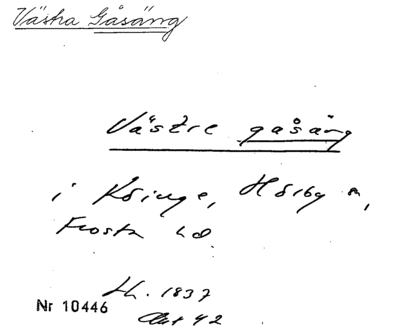 Västra Gåsäng
Västre gåsäng
i Köinge, Hörby sn,
Frosta hd
Lh. 1837
Akt 42
Nr 10446